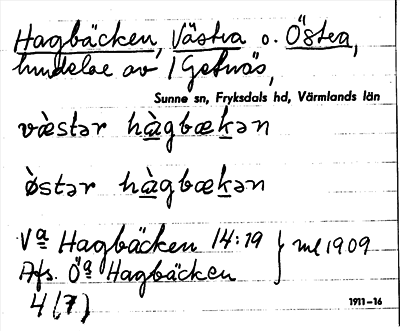 Hagbäcken, Västra o. Östra,
hundelar av 1 Getnäs,
Sunne sn, Fryksdals hd, Värmlands län
væ̀stər hàgbækən
ø̀stər hàgbækən
Va Hagbäcken 14:19
Afs. Öa Hagbäcken } ml 1909
4 (7)
1911-16